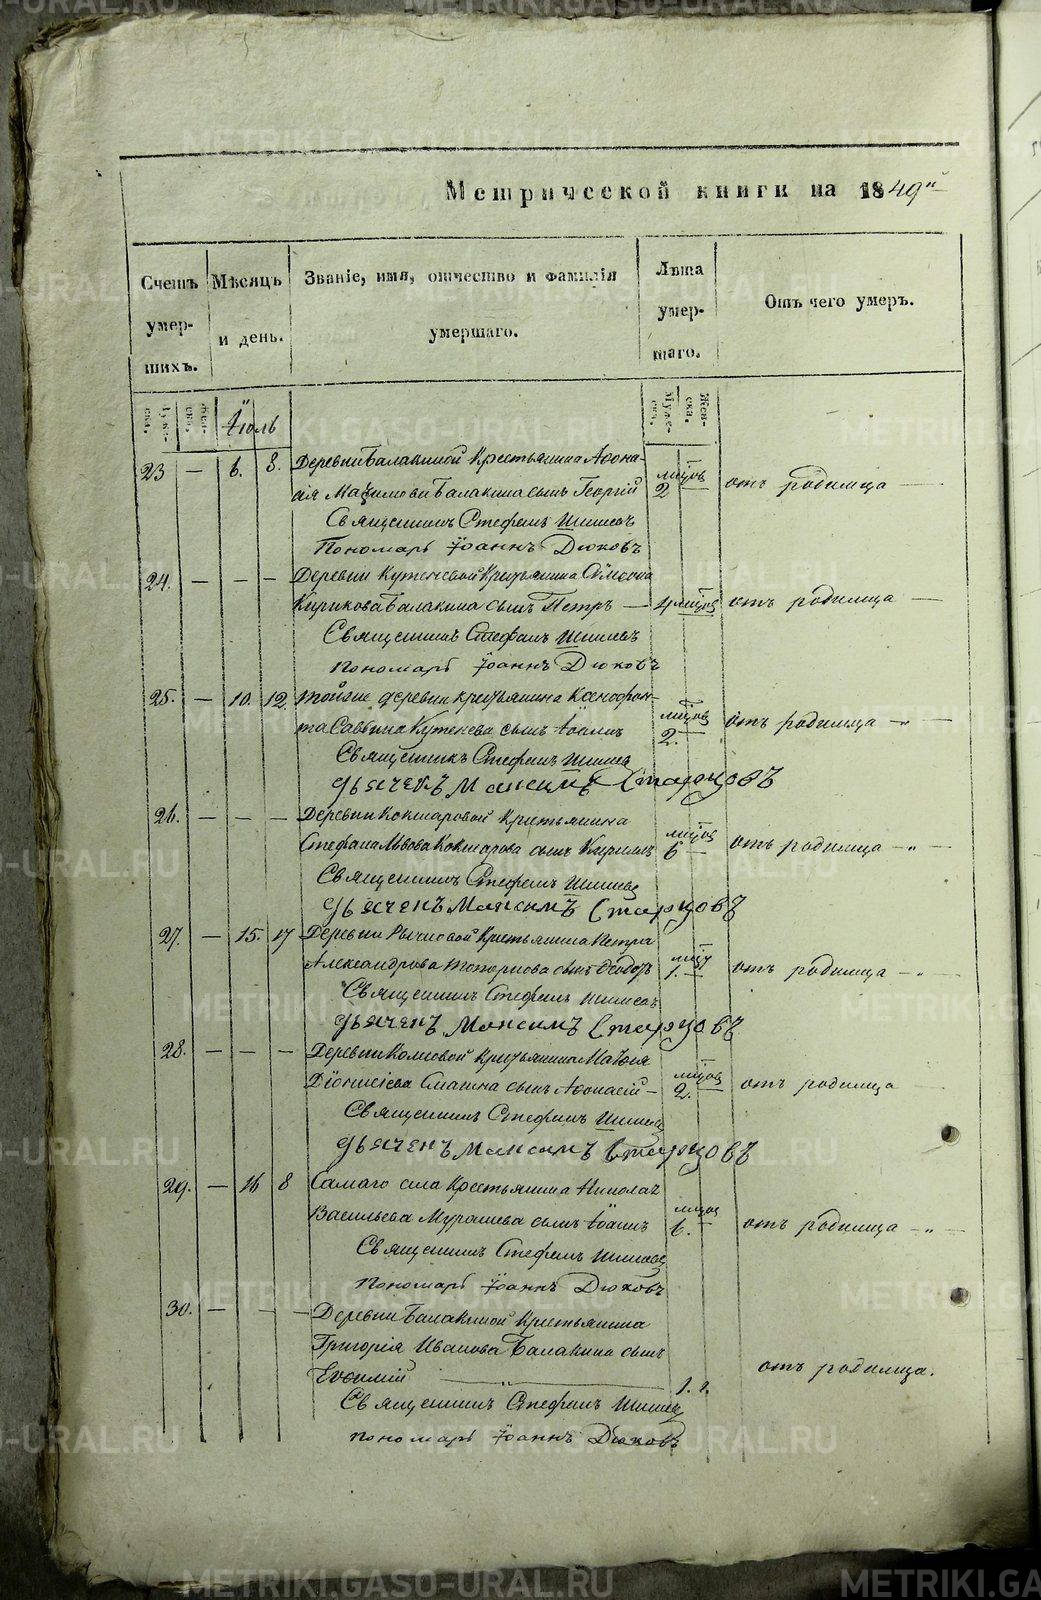 Метрической книги на 1849й
Счетъ умершихъ.
Мѣсяцъ и день.
Званіе, имя, отчество и фамилія умершаго.
Лѣта умершаго.
Отъ чего умеръ.
Муже-ска. Жен-ска. Іюль Муже-ска. Жен-ска.
23 — 6. 8. Деревни Балакиной Крестьянина Аѳона-
сія Максимова Балакина сынъ Георгій 2 отъ родимца —
Священникъ Стефанъ
Пономарь Іоаннъ Дюковъ
24. — — — Деревни Кутеневой Крестьянина Сѵмеона
Кирикова Балакина сынъ Петръ — 4 отъ родимца —
Священникъ Стефанъ
Пономарь Іоаннъ Дюковъ
25. — 10. 12. Тойже деревни крестьянина Ксенофон-
та Саввина Кутенева сынъ Іоаннъ 2. отъ родимца — „ —
Священникъ Стефанъ
Дьячекъ Максимъ Старцовъ
26. — — — Деревни Кокшаровой Крестьянина
Стефана Львова Кокшарова сынъ Кириллъ 6 — отъ родимца — „ —
Священникъ Стефанъ
Дьячекъ Максимъ Старцовъ
27. — 15. 17 Деревни Крестьянина Петра
Александрова Топоркова сынъ Ѳеодоръ 1. — отъ родимца — „ —
Священникъ Стефанъ
Дьячекъ Максимъ Старцовъ
28. — — — Деревни Крестьянина Матѳея
Діонисіева сынъ Аѳонасій — 2. — отъ родимца
Священникъ Стефанъ
Дьячекъ Максимъ Старцовъ
29. — 16 8 Самаго села Крестьянина Николая
Васильева сынъ Іоаннъ отъ родимца — „ —
Священникъ Стефанъ
Пономарь Іоаннъ Дюковъ
30. — — — Деревни Балакиной Крестьянина
Григорія Иванова Балакина сынъ
Евѳимій — „ — 1. г. отъ родимца.
Священникъ Стефанъ
Пономарь Іоаннъ Дюковъ
METRIKI.GASO-URAL.RU